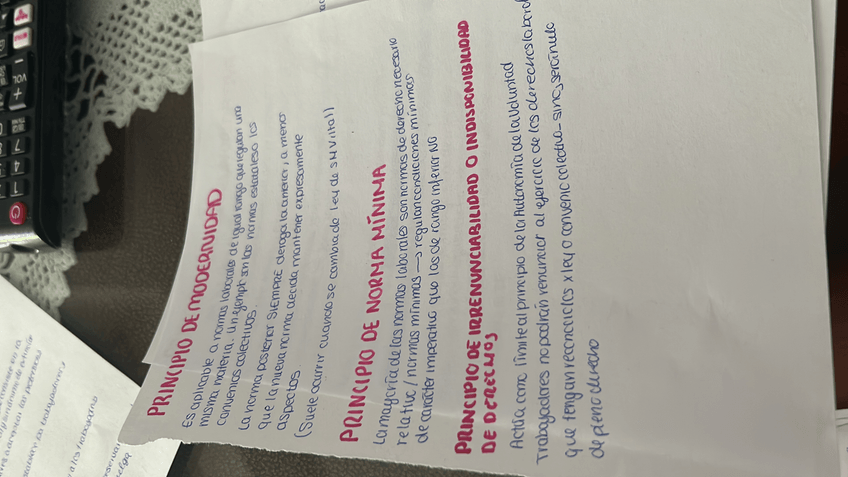 PRINCIPIO DE MODERNIDAD
Es aplicable a normas laborales de igual rango que regulan una
misma materia. Un ejemplo son las normas estatales o los
convenios colectivos.
La norma posterior SIEMPRE deroga la anterior, a menos
que la nueva norma decida mantener expresamente
aspectos
(Suele ocurrir cuando se cambia de ley de
PRINCIPIO DE NORMA MÍNIMA
La mayoría de las normas laborales son normas de derecho necesario
relativo / normas mínimas → regulan condiciones mínimas
de carácter imperativo que las de rango inferior NO
PRINCIPIO DE IRRENUNCIABILIDAD O INDISPONIBILIDAD
DE DERECHOS
Actúa como límite al principio de la Autonomía de la Voluntad
Trabajadores no podrán renunciar al ejercicio de los derechos laboral
que tengan reconocidos x ley o convenio colectivo sino, será nulo
de pleno derecho
VOL
+
-
7
4
1